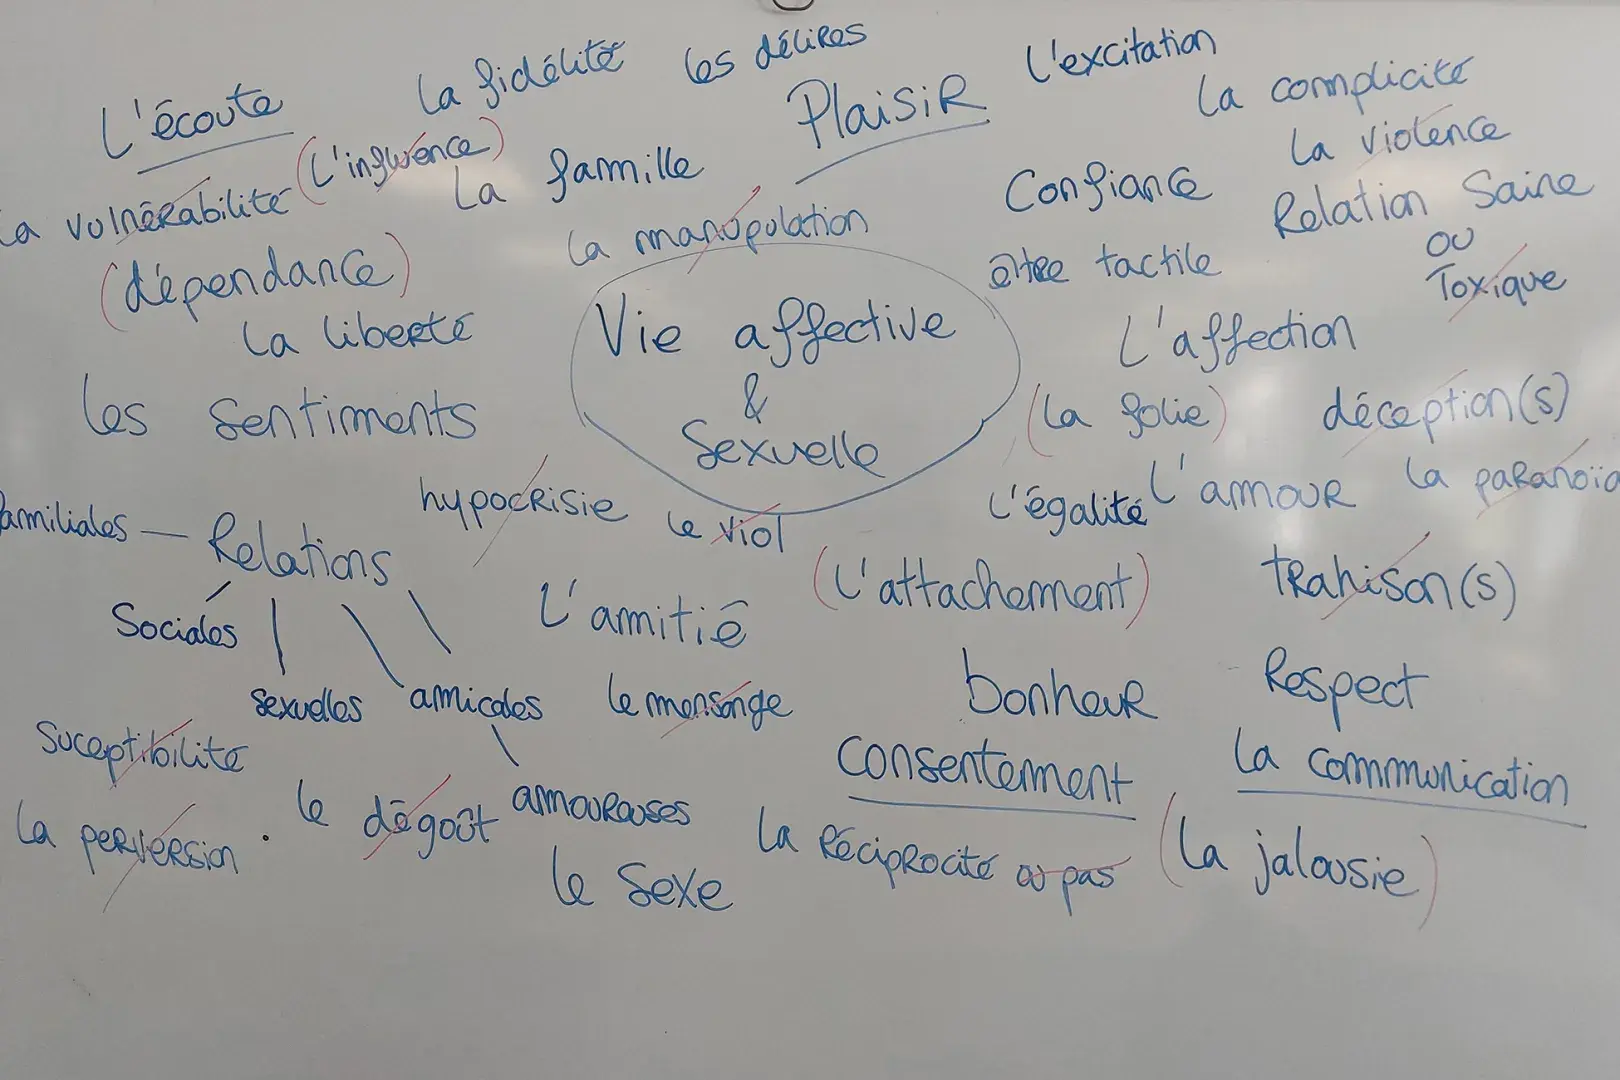 L'écoute
la fidélité
les délires
Plaisir
L'excitation
la complicité
La vulnérabilité
(L'influence)
La famille
la manipulation
Confiance
la violence
Relation Saine
ou
Toxique
(dépendance)
être tactile
la liberté
Vie affective
&
Sexuelle
L'affection
les sentiments
(la folie)
déception(s)
hypocrisie
le viol
L'égalité
L'amour
la paranoïa
familiales — Relations
Sociales
sexuelles
amicales
amoureuses
L'amitié
(L'attachement)
trahison(s)
le mensonge
bonheur
Respect
Suceptibilité
consentement
la communication
la perversion
le dégoût
le sexe
la réciprocité ou pas
(la jalousie)